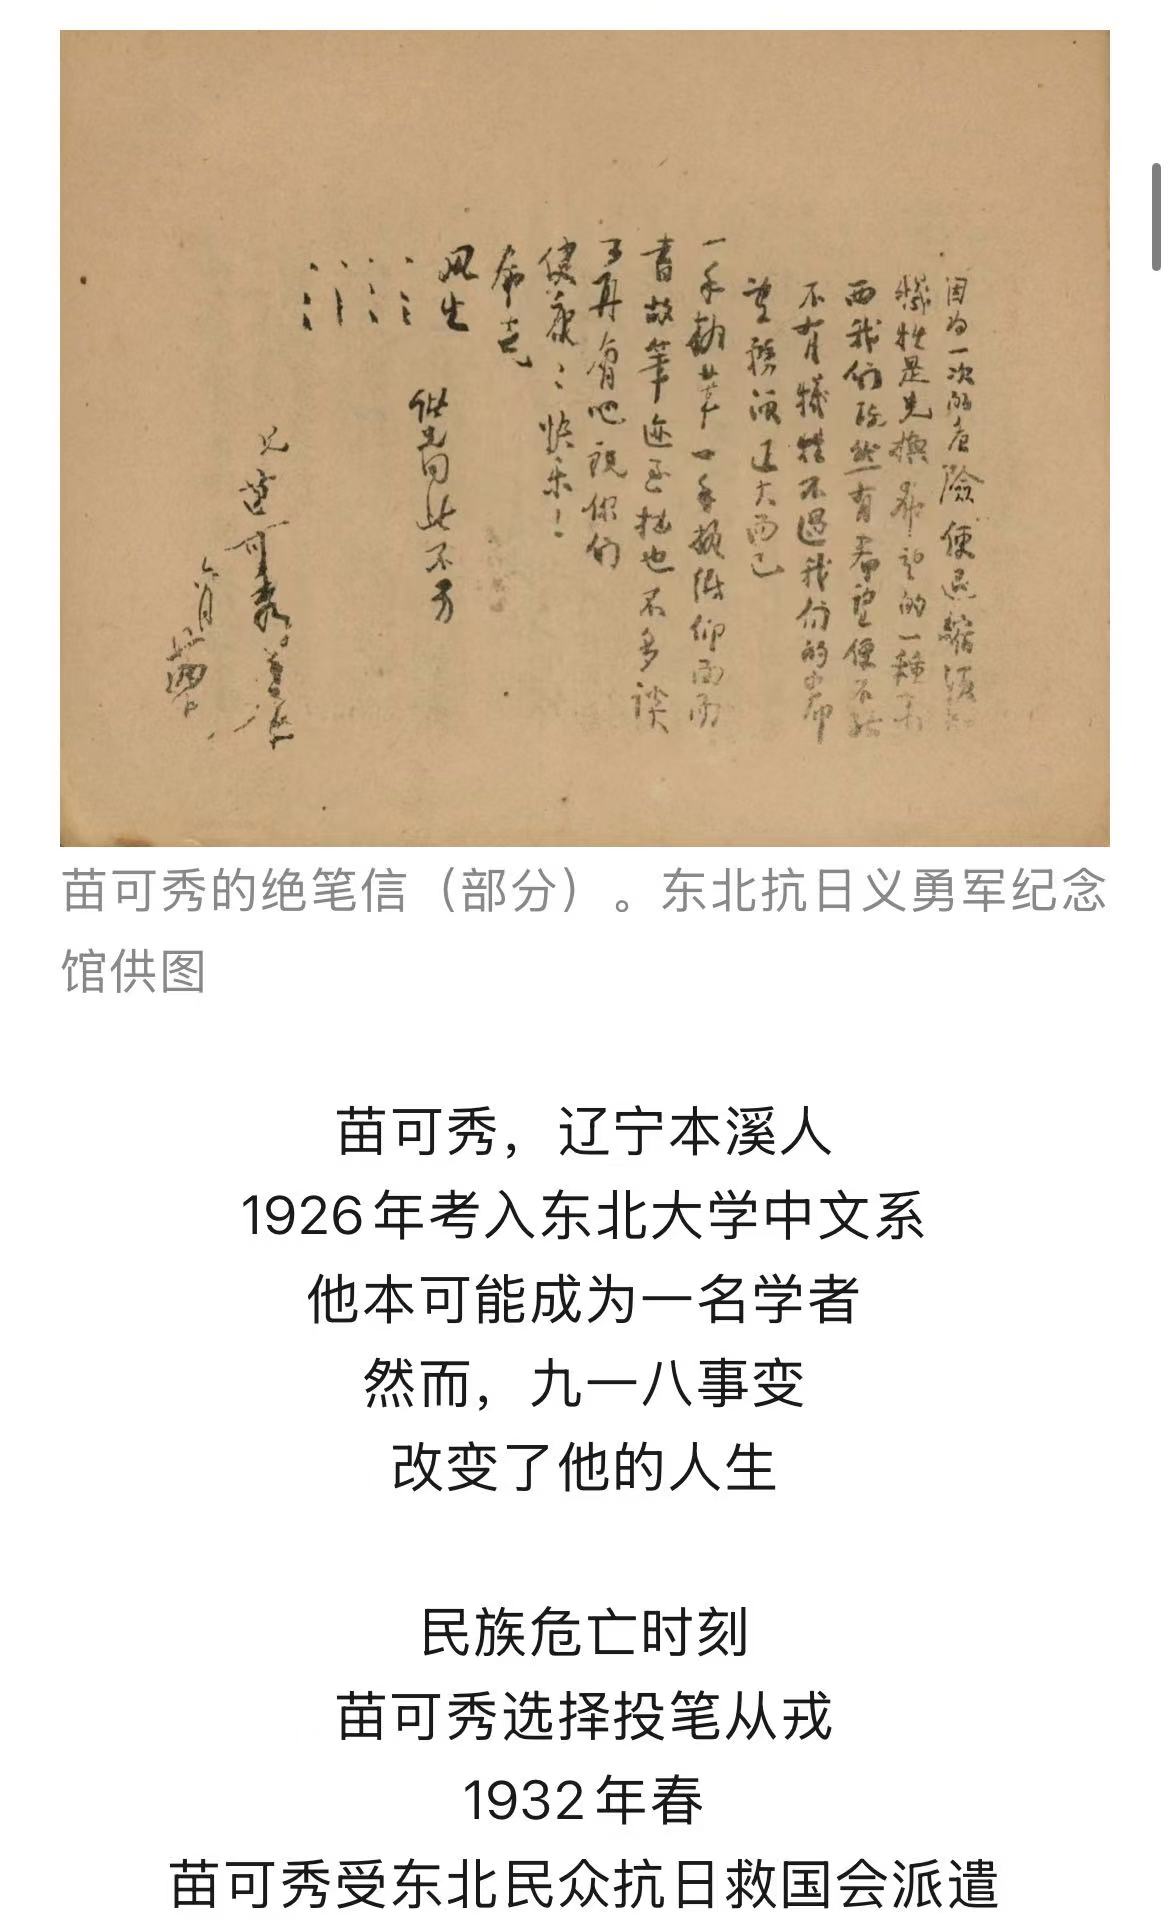 因为一次的危險便退縮須知
犧牲是先懷希望的一種
而我们既然有希望便不能
不有犧牲不過我们的希
望務須遠大而已
一手執筆一手執紙仰面而
書故筆迹至拙也不多談
了再有吧祝你们
健康;快乐!
雨亮
凤生
供尚同此不另
兄苗可秀
六月廿四日
苗可秀的绝笔信（部分）。东北抗日义勇军纪念
馆供图
苗可秀，辽宁本溪人
1926年考入东北大学中文系
他本可能成为一名学者
然而，九一八事变
改变了他的人生
民族危亡时刻
苗可秀选择投笔从戎
1932年春
苗可秀受东北民众抗日救国会派遣